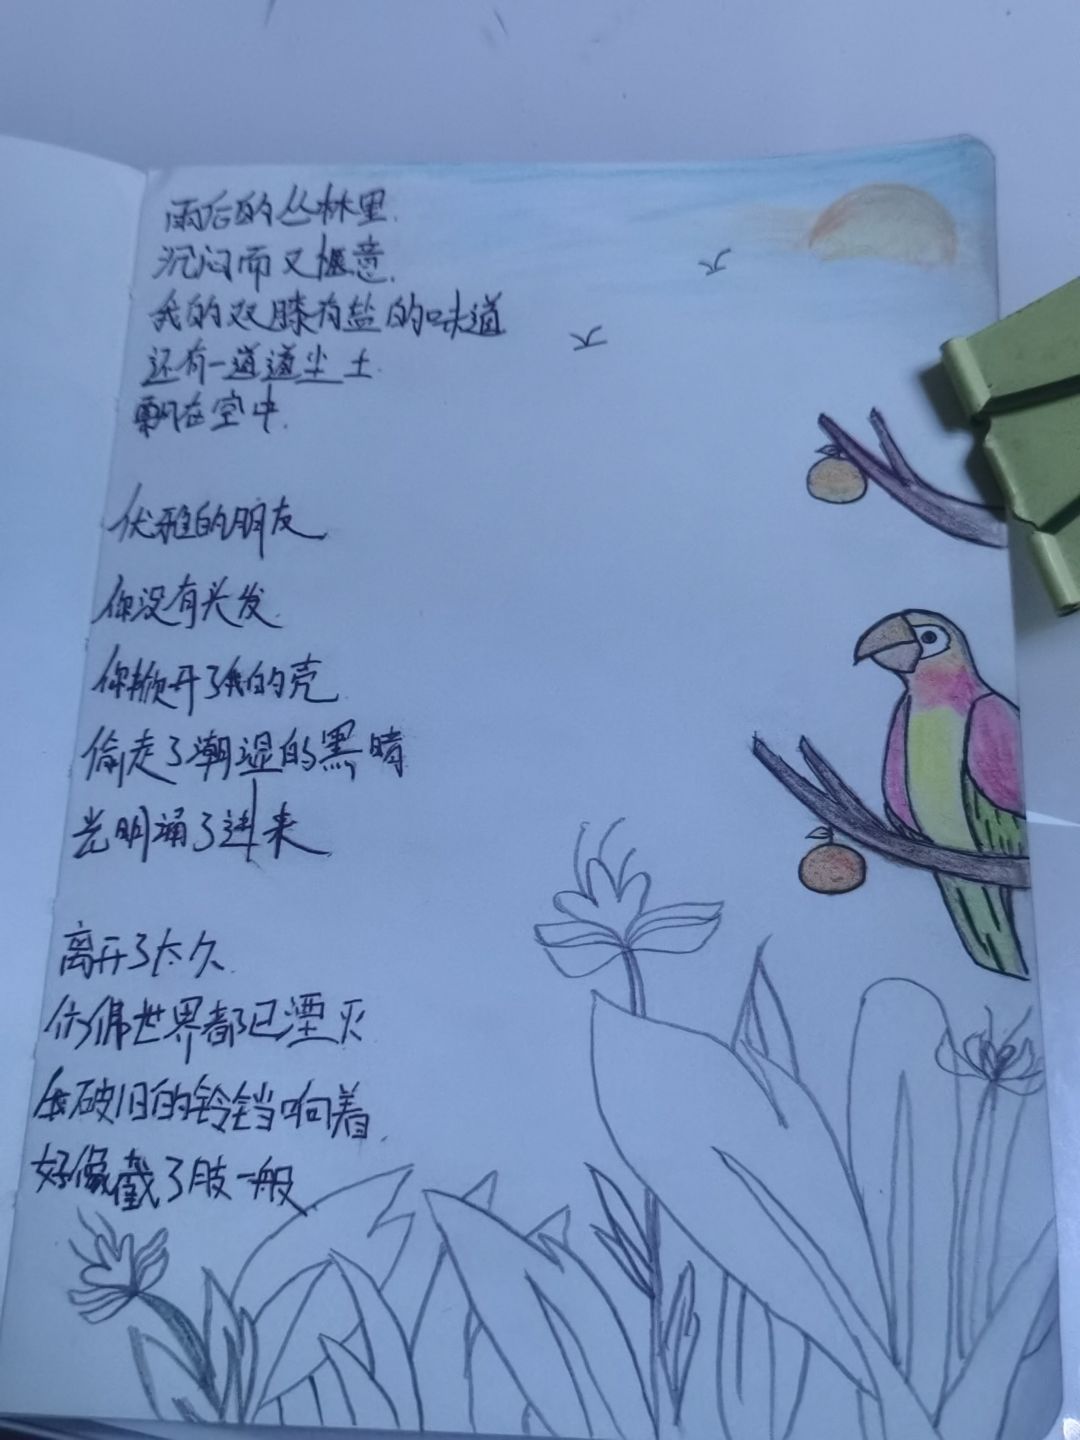 雨后的丛林里.
沉闷而又惬意.
我的双膝有盐的味道
还有一道道尘土.
飘在空中.
优雅的朋友
你没有头发.
你掀开了我的壳
偷走了潮湿的黑暗
光明涌了进来
离开了太久
仿佛世界都已湮灭
破旧的铃铛响着.
好像截了肢一般